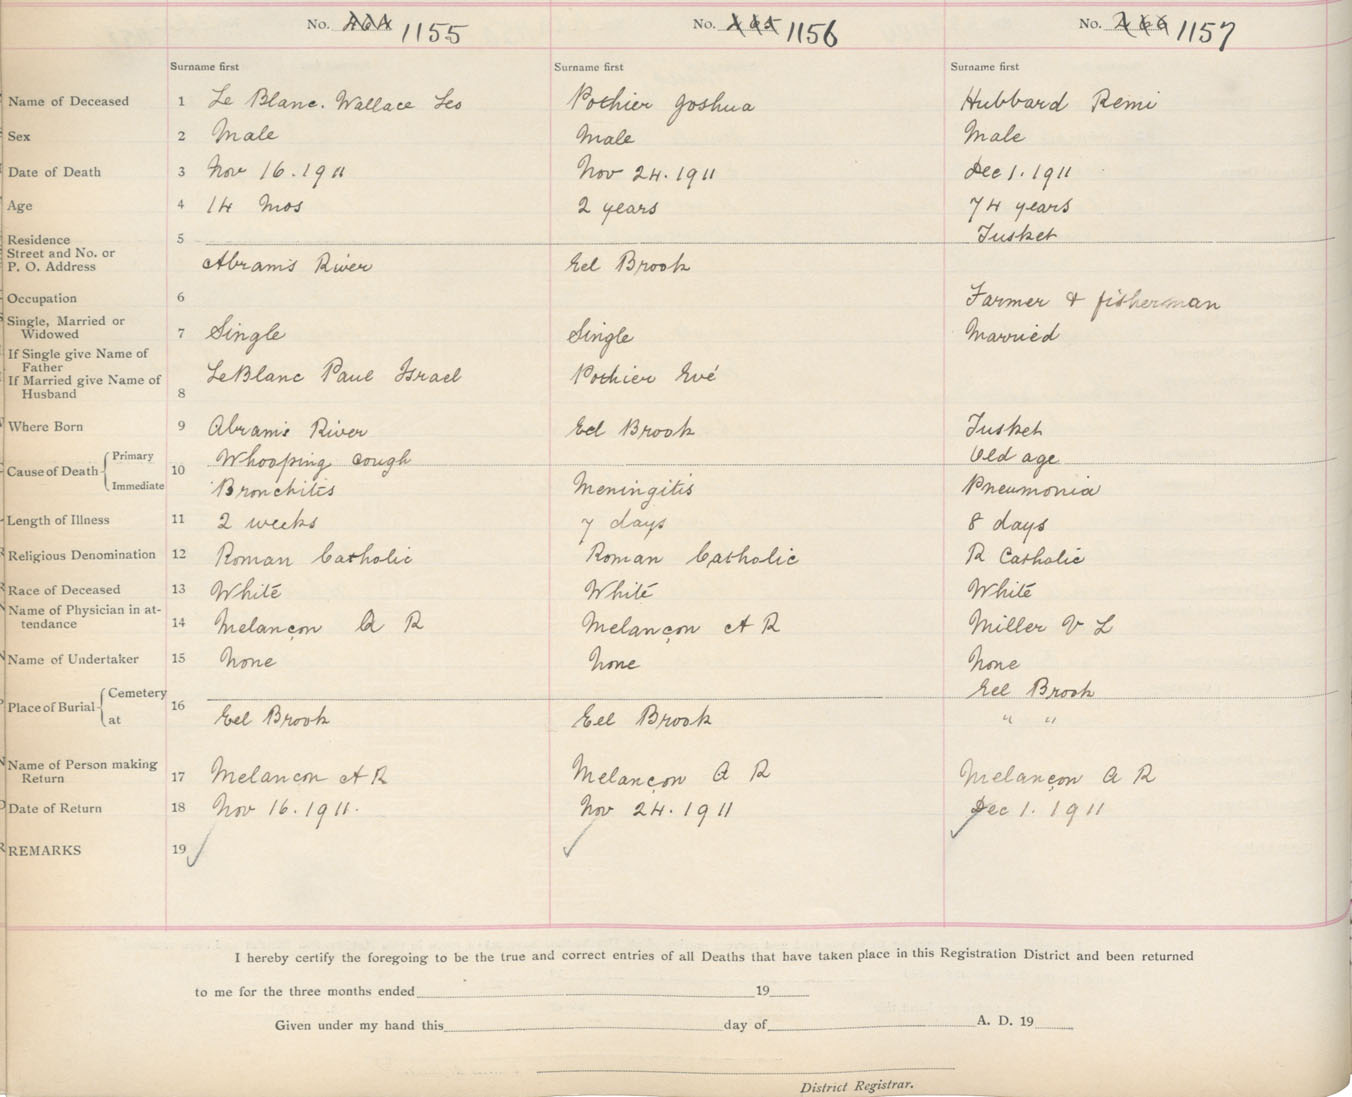 No. 464 1155 No. 465 1156 No. 466 1157
Surname first Surname first Surname first
Name of Deceased 1 Le Blanc. Wallace Leo Pothier Joshua Hubbard Remi
Sex 2 Male Male Male
Date of Death 3 Nov 16.1911 Nov 24.1911 Dec 1.1911
Age 4 14 mos 2 years 74 years
Residence 5 Tusket
Street and No. or
P. O. Address Abrams River Eel Brook
Occupation 6 Farmer & fisherman
Single, Married or
Widowed 7 Single Single Married
If Single give Name of
Father
If Married give Name of LeBlanc Paul Israel Pothier Evé
Husband 8
Where Born 9 Abrams River Eel Brook Tusket
Cause of Death { Primary 10 Whooping cough Old age
Immediate Bronchitis Meningitis Pneumonia
Length of Illness 11 2 weeks 7 days 8 days
Religious Denomination 12 Roman Catholic Roman Catholic R Catholic
Race of Deceased 13 White White White
Name of Physician in at-
tendance 14 Melançon A R Melançon A R Miller V L
Name of Undertaker 15 None None None
Place of Burial { Cemetery 16 Eel Brook
at Eel Brook Eel Brook " "
Name of Person making
Return 17 Melancon A R Melançon A R Melançon A R
Date of Return 18 Nov 16.1911. Nov 24.1911 Dec 1.1911
REMARKS 19
I hereby certify the foregoing to be the true and correct entries of all Deaths that have taken place in this Registration District and been returned
to me for the three months ended 19
Given under my hand this day of A. D. 19
District Registrar.